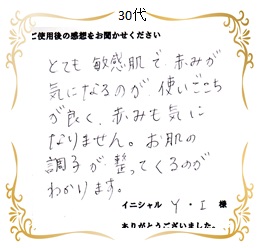 30代
ご使用後の感想をお聞かせください
とても敏感肌で、赤みが
気になるのが、使いごこち
が良く、赤みも気に
なりません。お肌の
調子が、整ってくるのが
わかります。
イニシャル Y・I 様
ありがとうございました。